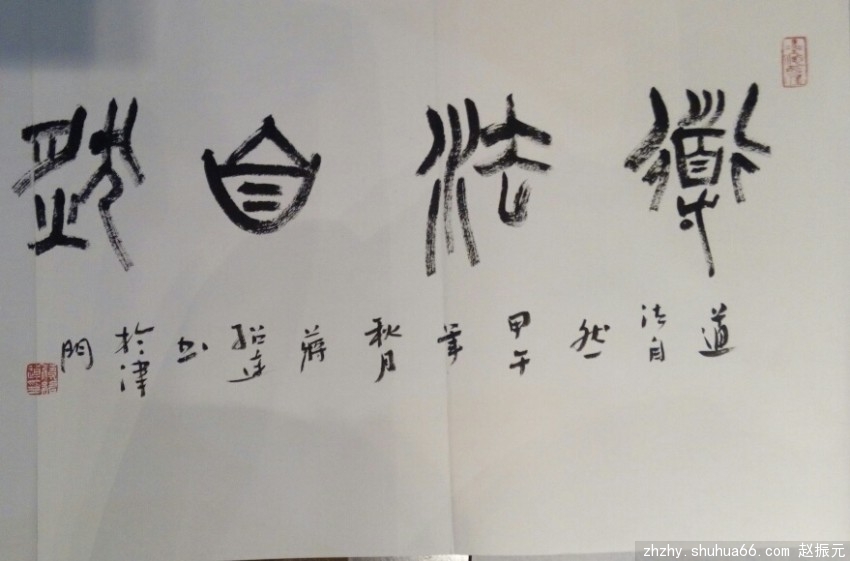 道法自然
道法自然甲午年秋月蔣紹遠书於津門
zhzhy.shuhua66.com 赵振元